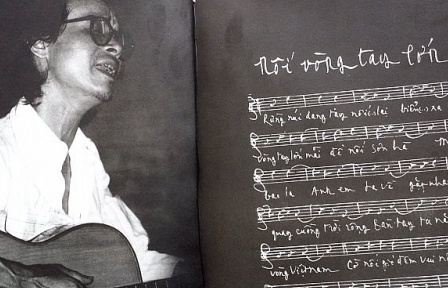 nối vòng tay lớn
Rừng núi dang tay nối lại biển xa
vòng tay lớn mãi để nối sơn hà
bao la Anh em ta về gặp nha
quay cuồng trời rộng Bàn tay ta nắ
vòng Việt nam Cờ nối gió đêm vui nố